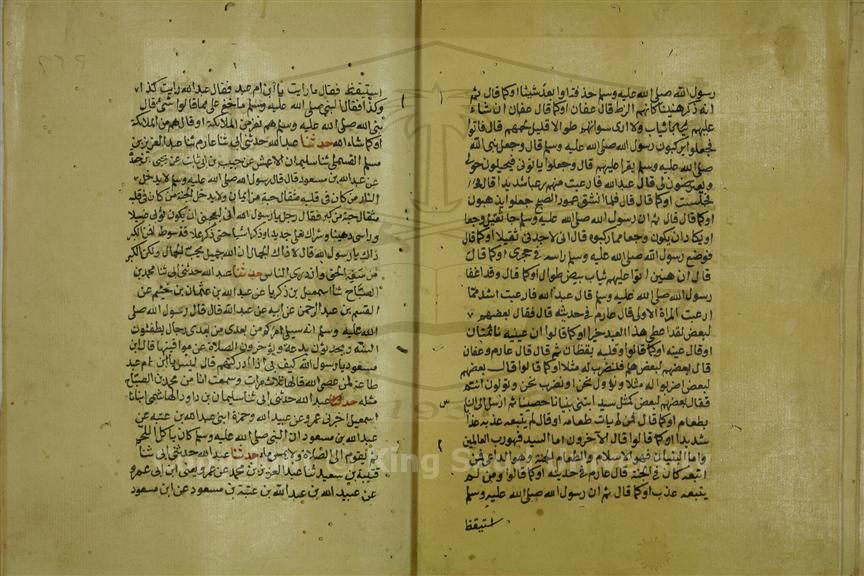 رسول الله صلى الله عليه وسلم حذفة او ابعد شيئا او كما قال ثم
انه ذكر هنينا كانهم الزط قال عفان او كما قال عفان ان شاء
عليهم ثياب ولا ارى سواتهم طوالا قليل لحمهم قال فاتوا
فجعلوا يركبون رسول الله صلى الله عليه وسلم قال وجعل نبي الله
صلى الله عليه وسلم يقرا عليهم قال وجعلوا ياتوني فيخيلون حولي
ويعترضون لي قال عبد الله فارعبت منهم رعبا شديدا قال
فجلست او كما قال قال فلما انشق عمود الصبح جعلوا يذهبون
او كما قال قال ثم ان رسول الله صلى الله عليه وسلم جا ثقيلا وجعا
او يكاد ان يكون وجعا مما ركبوه قال اني لاجدني ثقيلا او كما قال
فوضع رسول الله صلى الله عليه وسلم راسه في حجري او كما قال
قال ان هنين اتوا عليهم ثياب بيض طوال او كما قال وقد اغفا
رسول الله صلى الله عليه وسلم قال عبد الله فارعبت اشد مما
ارعبت المراة الاولى قال عارم في حديثه قال فقال بعضهم
لبعض لقد اعطي هذا العبد خيرا او كما قالوا ان عينيه نائمتان
او قال عينه او كما قالوا وقلبه يقظان ثم قال قال عارم وعفان
قال بعضهم لبعض هلم فلنضرب له مثلا او كما قالوا قال بعضهم
لبعض اضربوا له مثلا ونؤول نحن او نضرب نحن وتؤولون انتم
فقال بعضهم لبعض مثله كمثل سيد ابتنى بنيانا حصينا ثم ارسل الى الناس
بطعام او كما قال فمن لم يات طعامه او قال لم يتبعه عذبه عذابا
شديدا او كما قالوا قال الآخرون اما السيد فهو رب العالمين
واما البنيان فهو الاسلام والطعام الجنة وهو الداعي فمن
اتبعه كان في الجنة قال عارم في حديثه او كما قالوا ومن لم
يتبعه عذب او كما قال ثم ان رسول الله صلى الله عليه وسلم
استيقظ
استيقظ فقال ما رايت يا ابن ام عبد فقال عبد الله رايت كذا
وكذا فقال النبي صلى الله عليه وسلم ما خفي علي مما قالوا شيء قال
نبي الله صلى الله عليه وسلم هم نفر من الملائكة او قال هم من الملائكة
او كما شاء الله حدثنا عبد الله حدثني ابي ثنا عارم ثنا عبد العزيز بن
مسلم القسملي ثنا سليمان الاعمش عن حبيب بن ابي ثابت عن يحيى بن جعدة
عن عبد الله بن مسعود قال قال رسول الله صلى الله عليه وسلم لا يدخل
النار من كان في قلبه مثقال حبة من ايمان ولا يدخل الجنة من كان في قلبه
مثقال حبة من كبر فقال رجل يا رسول الله اني ليعجبني ان يكون ثوبي غسيلا
وراسي دهينا وشراك نعلي جديدا وذكر اشيا حتى ذكر علاقة سوطه افمن الكبر
ذاك يا رسول الله قال لا ذاك الجمال ان الله جميل يحب الجمال ولكن الكبر
من سفه الحق وازدرى الناس حدثنا عبد الله حدثني ابي ثنا محمد بن
الصباح ثنا اسمعيل بن زكريا عن عبد الله بن عثمان بن خثيم عن
القسم بن عبد الرحمن عن ابيه عن عبد الله قال قال رسول الله صلى
الله عليه وسلم انه سيلي امركم من بعدي رجال يطفئون
السنة ويحدثون بدعة ويؤخرون الصلاة عن مواقيتها قال ابن
مسعود يا رسول الله كيف بي اذا ادركتهم قال ليس يا ابن ام عبد
طاعة لمن عصى الله قالها ثلاث مرات وسمعت انا من محمد بن الصباح
مثله حدثنا عبد الله حدثني ابي ثنا سليمان بن داود الهاشمي انبانا
اسمعيل اخبرني عمرو عن عبيد الله وحمزة ابني عبد الله بن عتبة عن
عبد الله بن مسعود ان النبي صلى الله عليه وسلم كان ياكل اللحم
ثم يقوم الى الصلاة ولا يمس ماء حدثنا عبد الله حدثني ابي ثنا
قتيبة بن سعيد ثنا عبد العزيز بن محمد عن عمرو يعني ابن ابي عمرو
عن عبيد الله بن عبد الله بن عتبة بن مسعود عن ابن مسعود